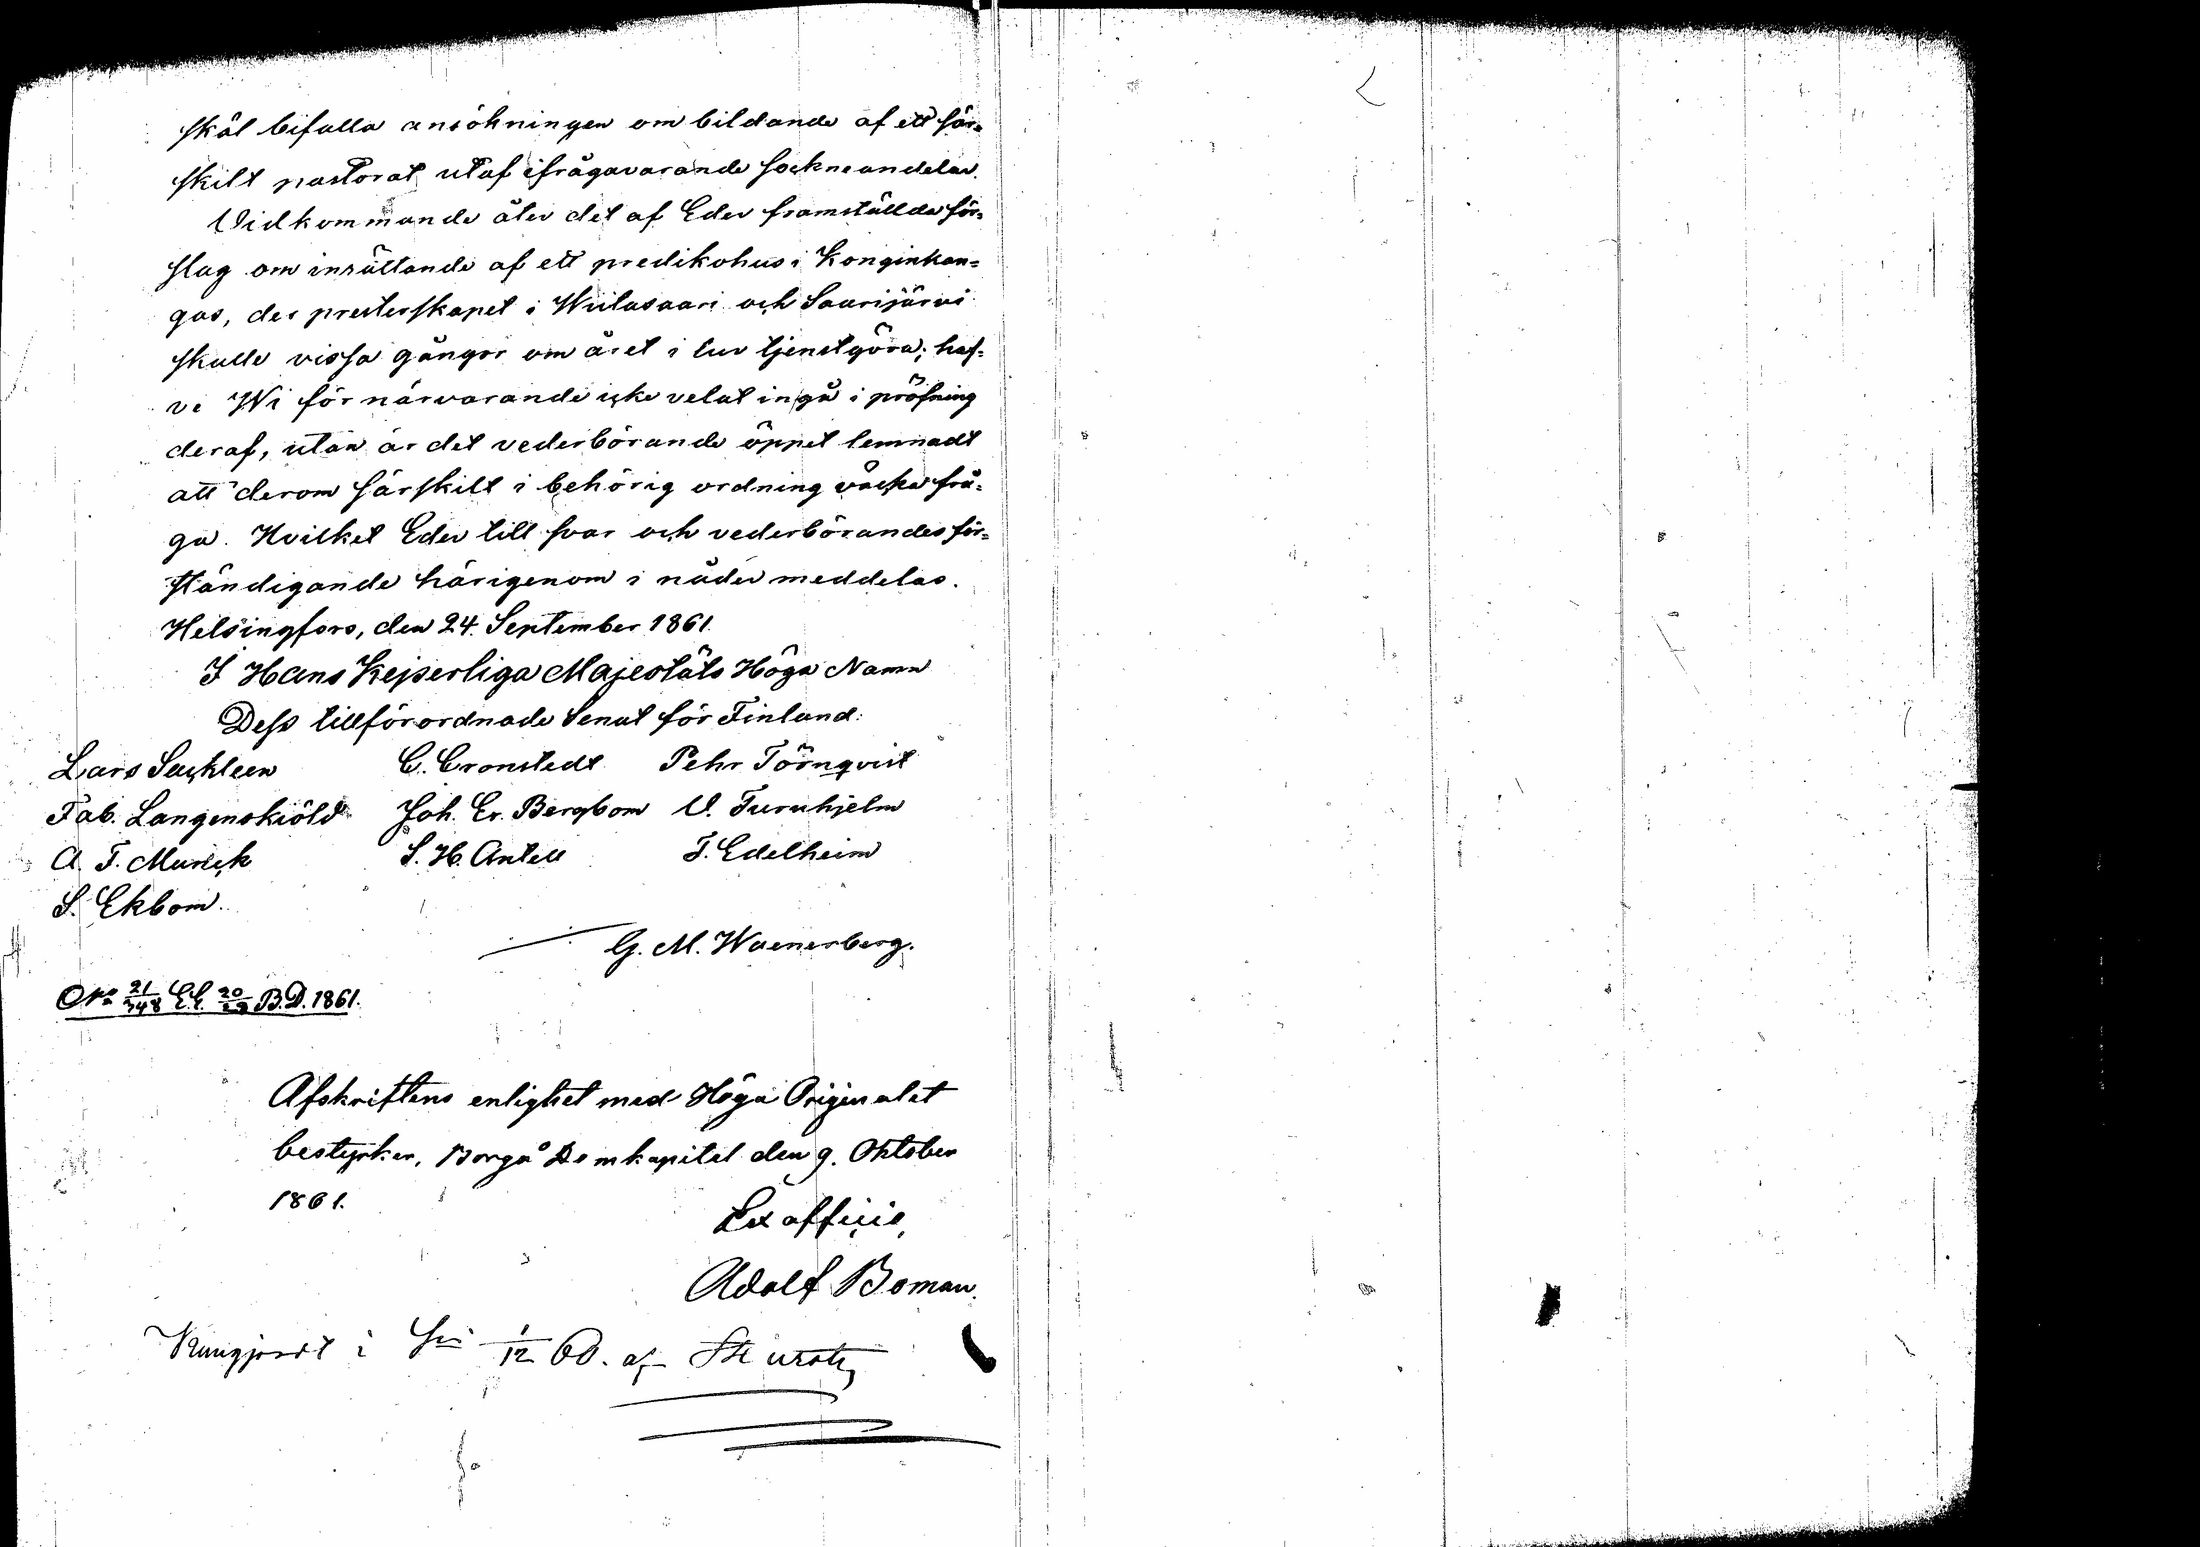 skäl bifalla ansökningen om bildande af ett sär=
skilt pastorat utaf ifrågavarande sockneandelar.
Vidkommande åter det af Eder framställda för=
slag om inrättande af ett predikohus i Konginkan=
gas, der presterskapet i Wiitasaari och Saarijärvi
skulle vissa gånger om året i tur tjenstgöra; haf=
ve Wi för närvarande icke velat ingå i pröfning
deraf, utan är det vederbörande öppet lemnadt
att derom särskilt i behörig ordning väcka frå=
ga. Hvilket Eder till svar och vederbörandes för=
ständigande härigenom i nåder meddelas.
Helsingfors, den 24. September 1861.
I Hans Kejserliga Majestäts Höga Namn
Dess tillförordnade Senat för Finland:
Lars Sackleen C. Cronstedt Pehr Törnqvist
Fab. Langenskiöld Joh. Er. Bergbom V. Furuhjelm
A. F. Munck S. H. Antell F. Edelheim
S. Ekbom.
G. M. Waenerberg.
No 21/348 E.E. 20/29 B.D. 1861.
Afskriftens enlighet med Höga Originalet
bestyrker, Borgå Domkapitel den 9. Oktober
1861.
Ex officio,
Adolf Boman.
Kungjordt i 1/12 af